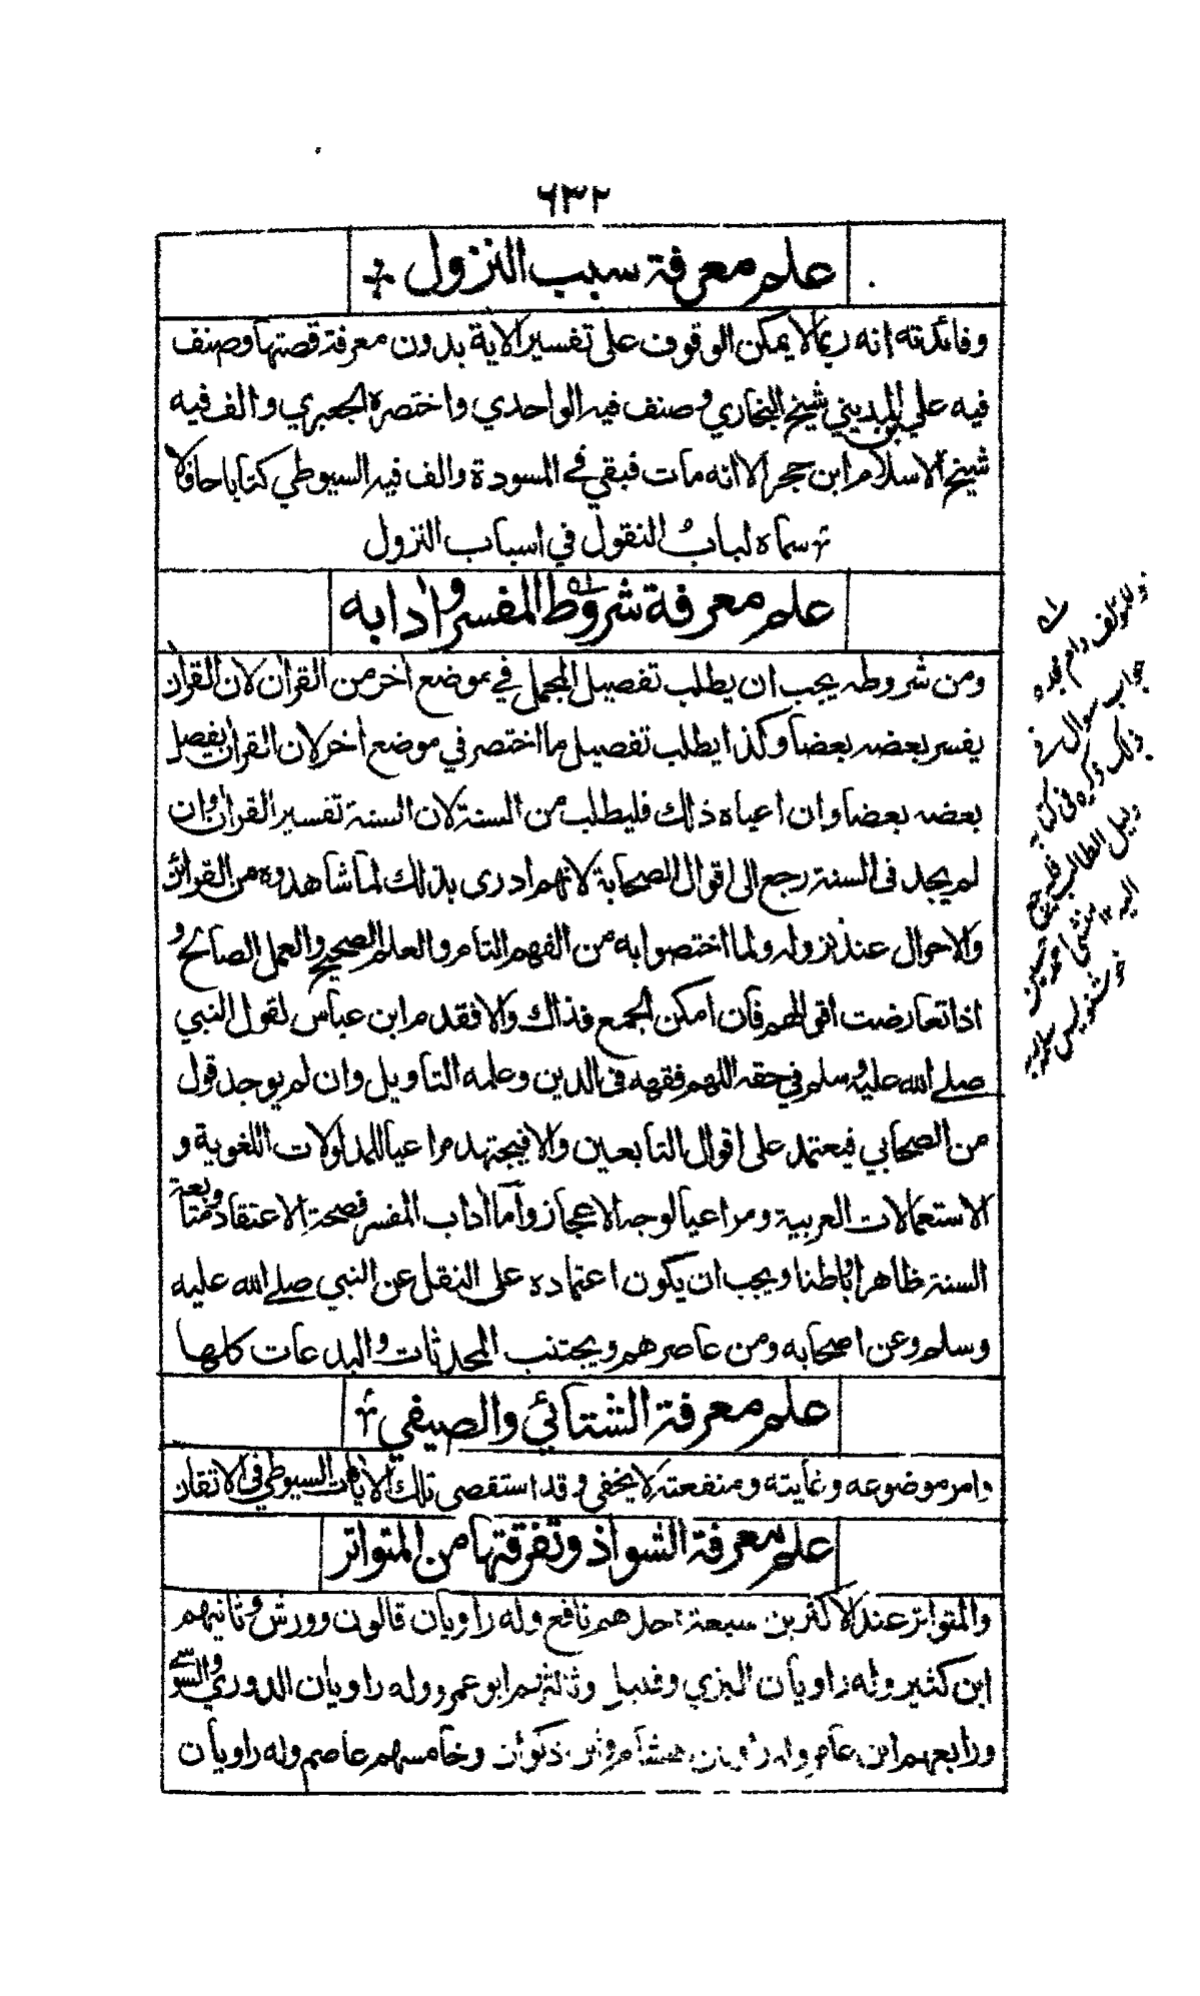 ٦٣٢
علم معرفة سبب النزول
وفائدته انه ربما لا يمكن الوقوف على تفسير الآية بدون معرفة قصتها وصنف
فيه علي بن المديني شيخ البخاري وصنف فيه الواحدي واختصره الجعبري والف فيه
شيخ الاسلام ابن حجر الا انه مات فبقي في المسودة والف فيه السيوطي كتابا حافلا
سماه لباب النقول في اسباب النزول
علم معرفة شروط المفسر وآدابه
ومن شروطه يجب ان يطلب تفصيل المجمل في موضع آخر من القرآن لان القرآن
يفسر بعضه بعضا وكذا يطلب تفصيل ما اختصر في موضع آخر لان القرآن يفصل
بعضه بعضا وان اعياه ذلك فليطلب من السنة لان السنة تفسير القرآن وان
لم يجد في السنة رجع الى اقوال الصحابة لانهم ادرى بذلك لما شاهدوه من القرائن
والاحوال عند نزوله ولما اختصوا به من الفهم التام والعلم الصحيح والعمل الصالح و
اذا تعارضت اقوالهم فان امكن الجمع فذاك والا فقدم ابن عباس لقول النبي
صلى الله عليه وسلم في حقه اللهم فقهه في الدين وعلمه التاويل وان لم يوجد قول
من الصحابي فيعتمد على اقوال التابعين والا فيجتهد مراعيا للمدلولات اللغوية و
الاستعمالات العربية ومراعيا لوجه الاعجاز واما آداب المفسر فصحة الاعتقاد ومتابعة
السنة ظاهرا وباطنا ويجب ان يكون اعتماده على النقل عن النبي صلى الله عليه
وسلم وعن اصحابه ومن عاصرهم ويجتنب المحدثات والبدعات كلها
علم معرفة الشتائي والصيفي
وامر موضوعه وغايته ومنفعته لا يخفى وقد استقصى تلك الآيات السيوطي في الاتقان
علم معرفة الشواذ وتفرقتها من المتواتر
والمتواتر عند الاكثرين سبعة احدهم نافع وله راويان قالون وورش وثانيهم
ابن كثير وله راويان البزي وقنبل وثالثهم ابو عمرو وله راويان الدوري والسوسي
ورابعهم ابن عامر وله راويان هشام وابن ذكوان وخامسهم عاصم وله راويان
وللمؤلف دام مجده
جواب سوال في
ذلك ذكره في كتابه
دليل الطالب فليرجع
اليه منشي محمد حسين
خوشنويس سلمه